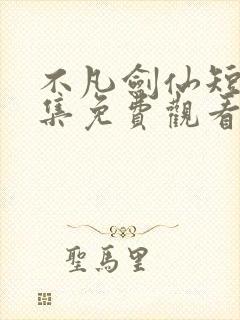 不凡劍仙短
集免費觀看
聖馬里